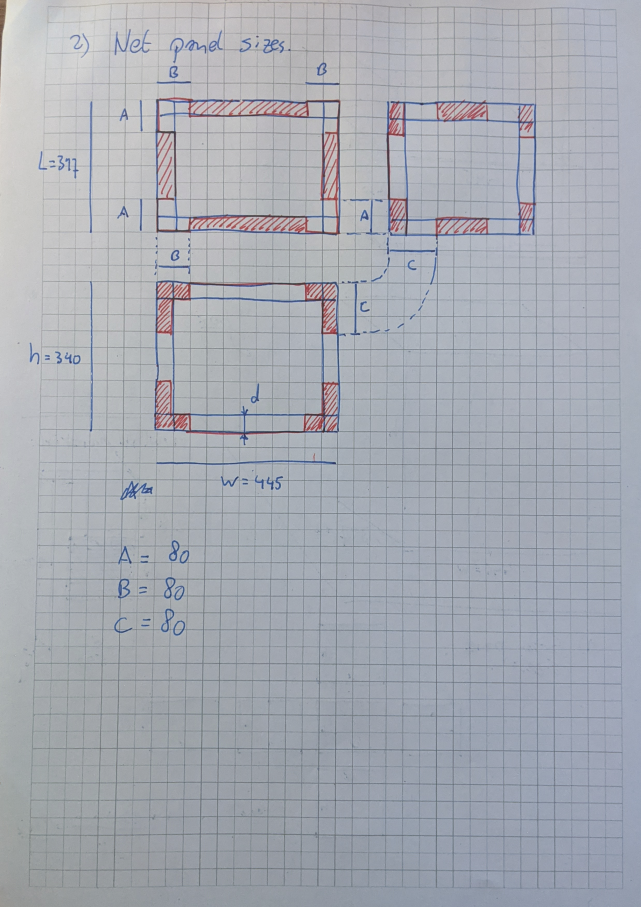 2) Net panel sizes.
B B
A
L=397
A A
B C
C
h=340
d
W=445
A = 80
B = 80
C = 80